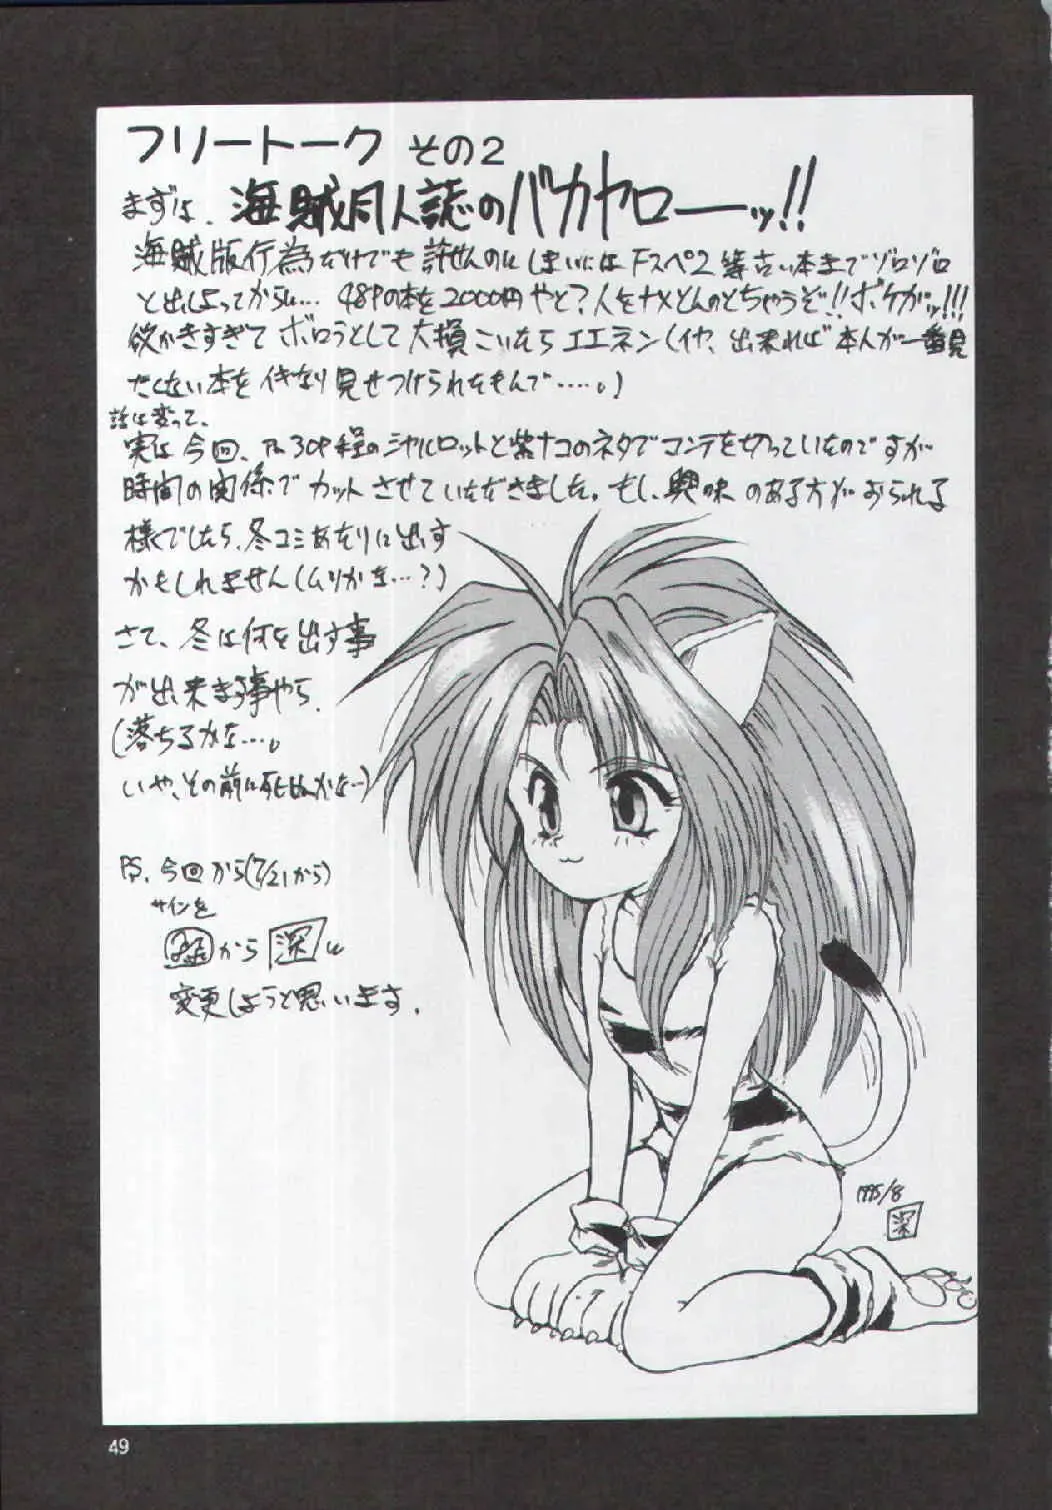 フリートーク その2
まずは、海賊同人誌のバカヤローーッ!!
海賊版行為だけでも許せんのにしまいにはFスペ2等古い本までゾロゾロ
と出しよってからに… 48Pの本を2000円やと?人をナメとんのとちゃうぞ!!ボケがッ!!!
欲かきすぎてボロうとして大損こいたらエエネン(イヤ、出来れば本人が一番見
たくない本をイキなり見せつけられたもんで……。)
話は変って、
実は今回、30P程のシャルロットと紫ナコのネタでコンテを切っていたのですが
時間の関係でカットさせていただきました。もし、興味のある方がおられる
様でしたら、冬コミあたりに出す
かもしれません(ムリかな…?)
さて、冬は何を出す事
が出来まる事やら。
(落ちるかな…。
いや、その前に死ぬかな…)
PS.今回から(7/21から)
サインを
から 深 に
変更しようと思います。
1995/8
深
49